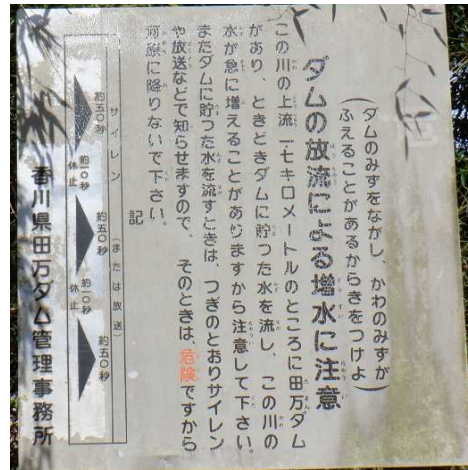 （ダムのみずをながし、かわのみずが
ふえることがあるからきをつけよ）
ダムの放流による増水に注意
この川の上流一七キロメートルのところに田万ダム
があり、ときどきダムに貯った水を流し、この川の
水が急に増えることがありますから注意して下さい。
またダムに貯った水を流すときは、つぎのとおりサイレン
や放送などで知らせますので、そのときは、危険ですから
河原に降りないで下さい。
記
サイレン（または放送）
約五〇秒 約一〇秒 約五〇秒 約一〇秒 約五〇秒
休止 休止
香川県田万ダム管理事務所